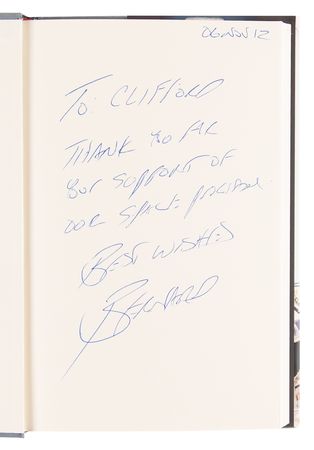 06 NOV 12
TO: CLIFFORD
THANK YOU FOR
YOUR SUPPORT OF
OUR SPACE PROGRAM.
BEST WISHES
BERNARD